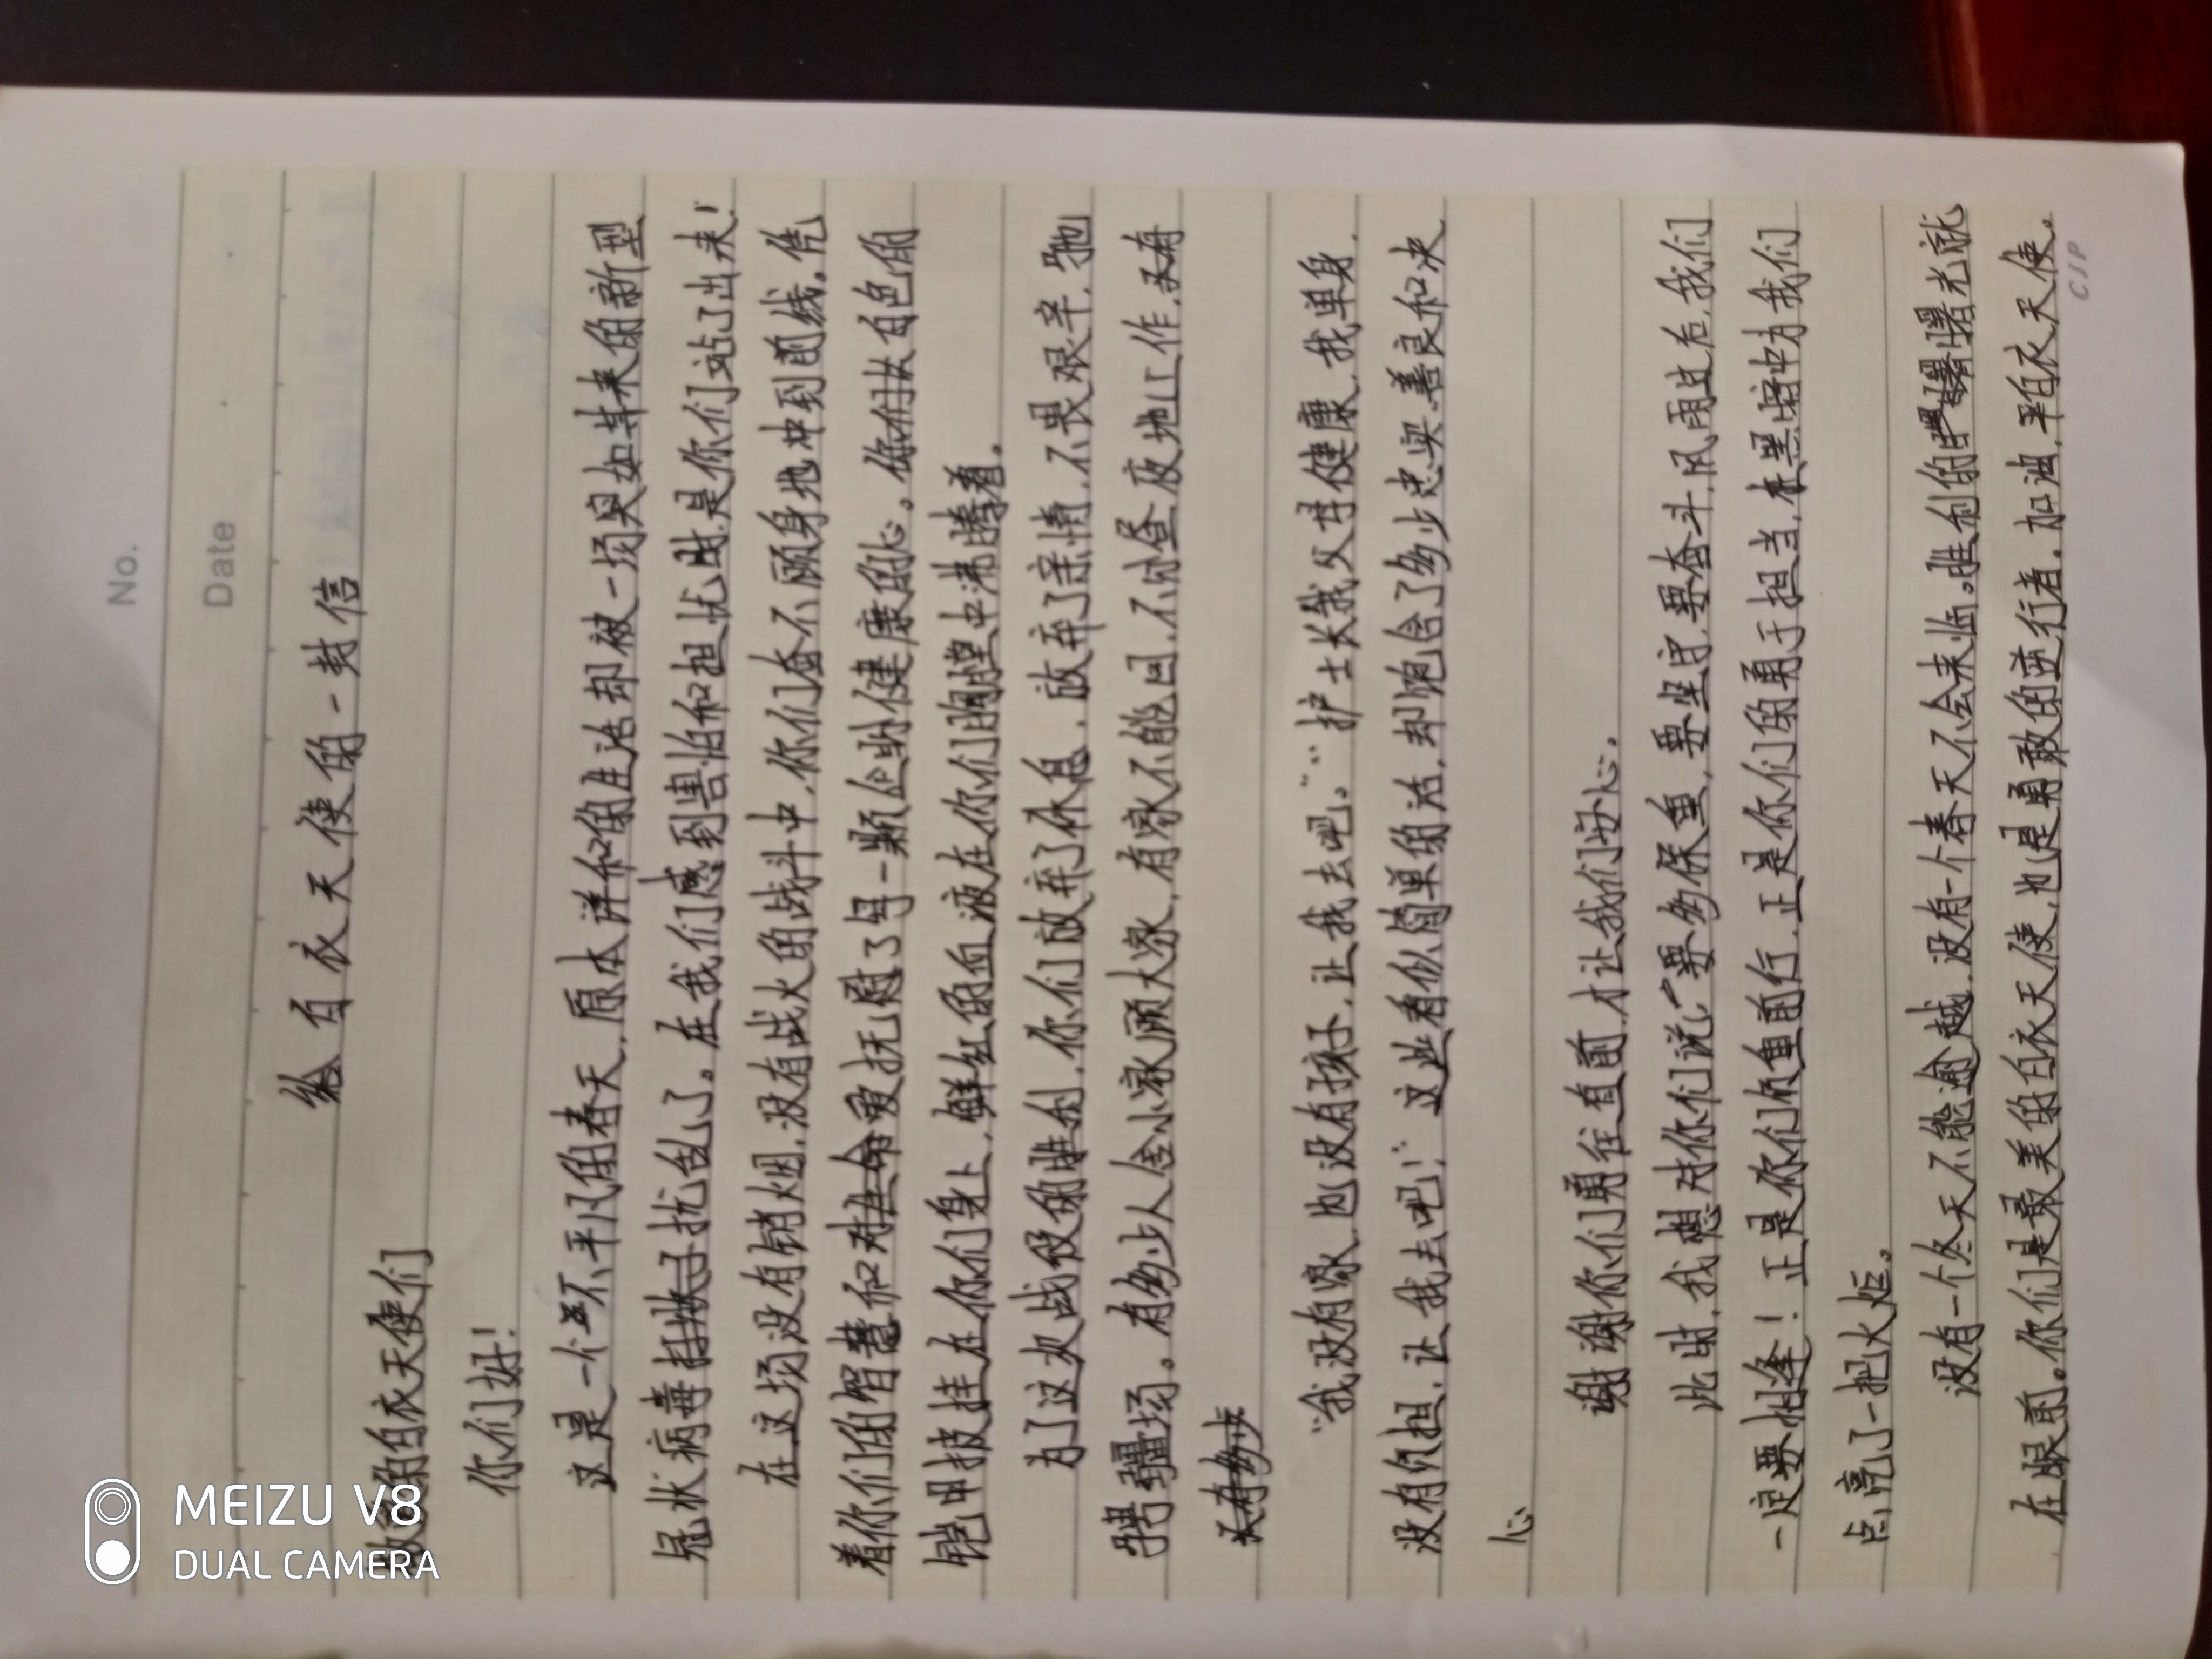 No.
Date
给白衣天使的一封信
敬爱的白衣天使们
你们好!
这是一个不平凡的春天,原本祥和的生活却被一场突如其来的新型
冠状病毒扰乱了。在我们感到害怕和担忧时,是你们站了出来!
在这场没有销烟,没有战火的战斗中,你们奋不顾身地冲到前线,凭
着你们的智慧和爱抚慰了每一颗企盼健康的心。你们以白色的
铠甲披挂在你们身上,鲜红的血液在你们胸膛中沸腾着。
为了这次战役的胜利,你们放弃了休息,放弃了亲情,不畏艰辛,驰
骋疆场。有多少人舍小家顾大家,有家不能回,不分昼夜地工作,
“我没有家,也没有孩子,让我去吧。”“护士长我父母健康,我单身,
没有负担,让我去吧!”这些看似简单的话,却饱含了多少忠实善良和决
心
谢谢你们勇往直前,才让我们安心。
此时,我想对你们说:“要多保重,要坚守,要奋斗,风雨过后,我们
一定要相逢!正是你们负重前行,正是你们的勇于担当,在黑暗中为我们
点亮了一把火炬。
没有一个冬天不能逾越,没有一个春天不会来临。胜利的曙光就
在眼前。你们是最美的白衣天使,也是勇敢的逆行者,加油,白衣天使。
CJP
MEIZU V8
DUAL CAMERA